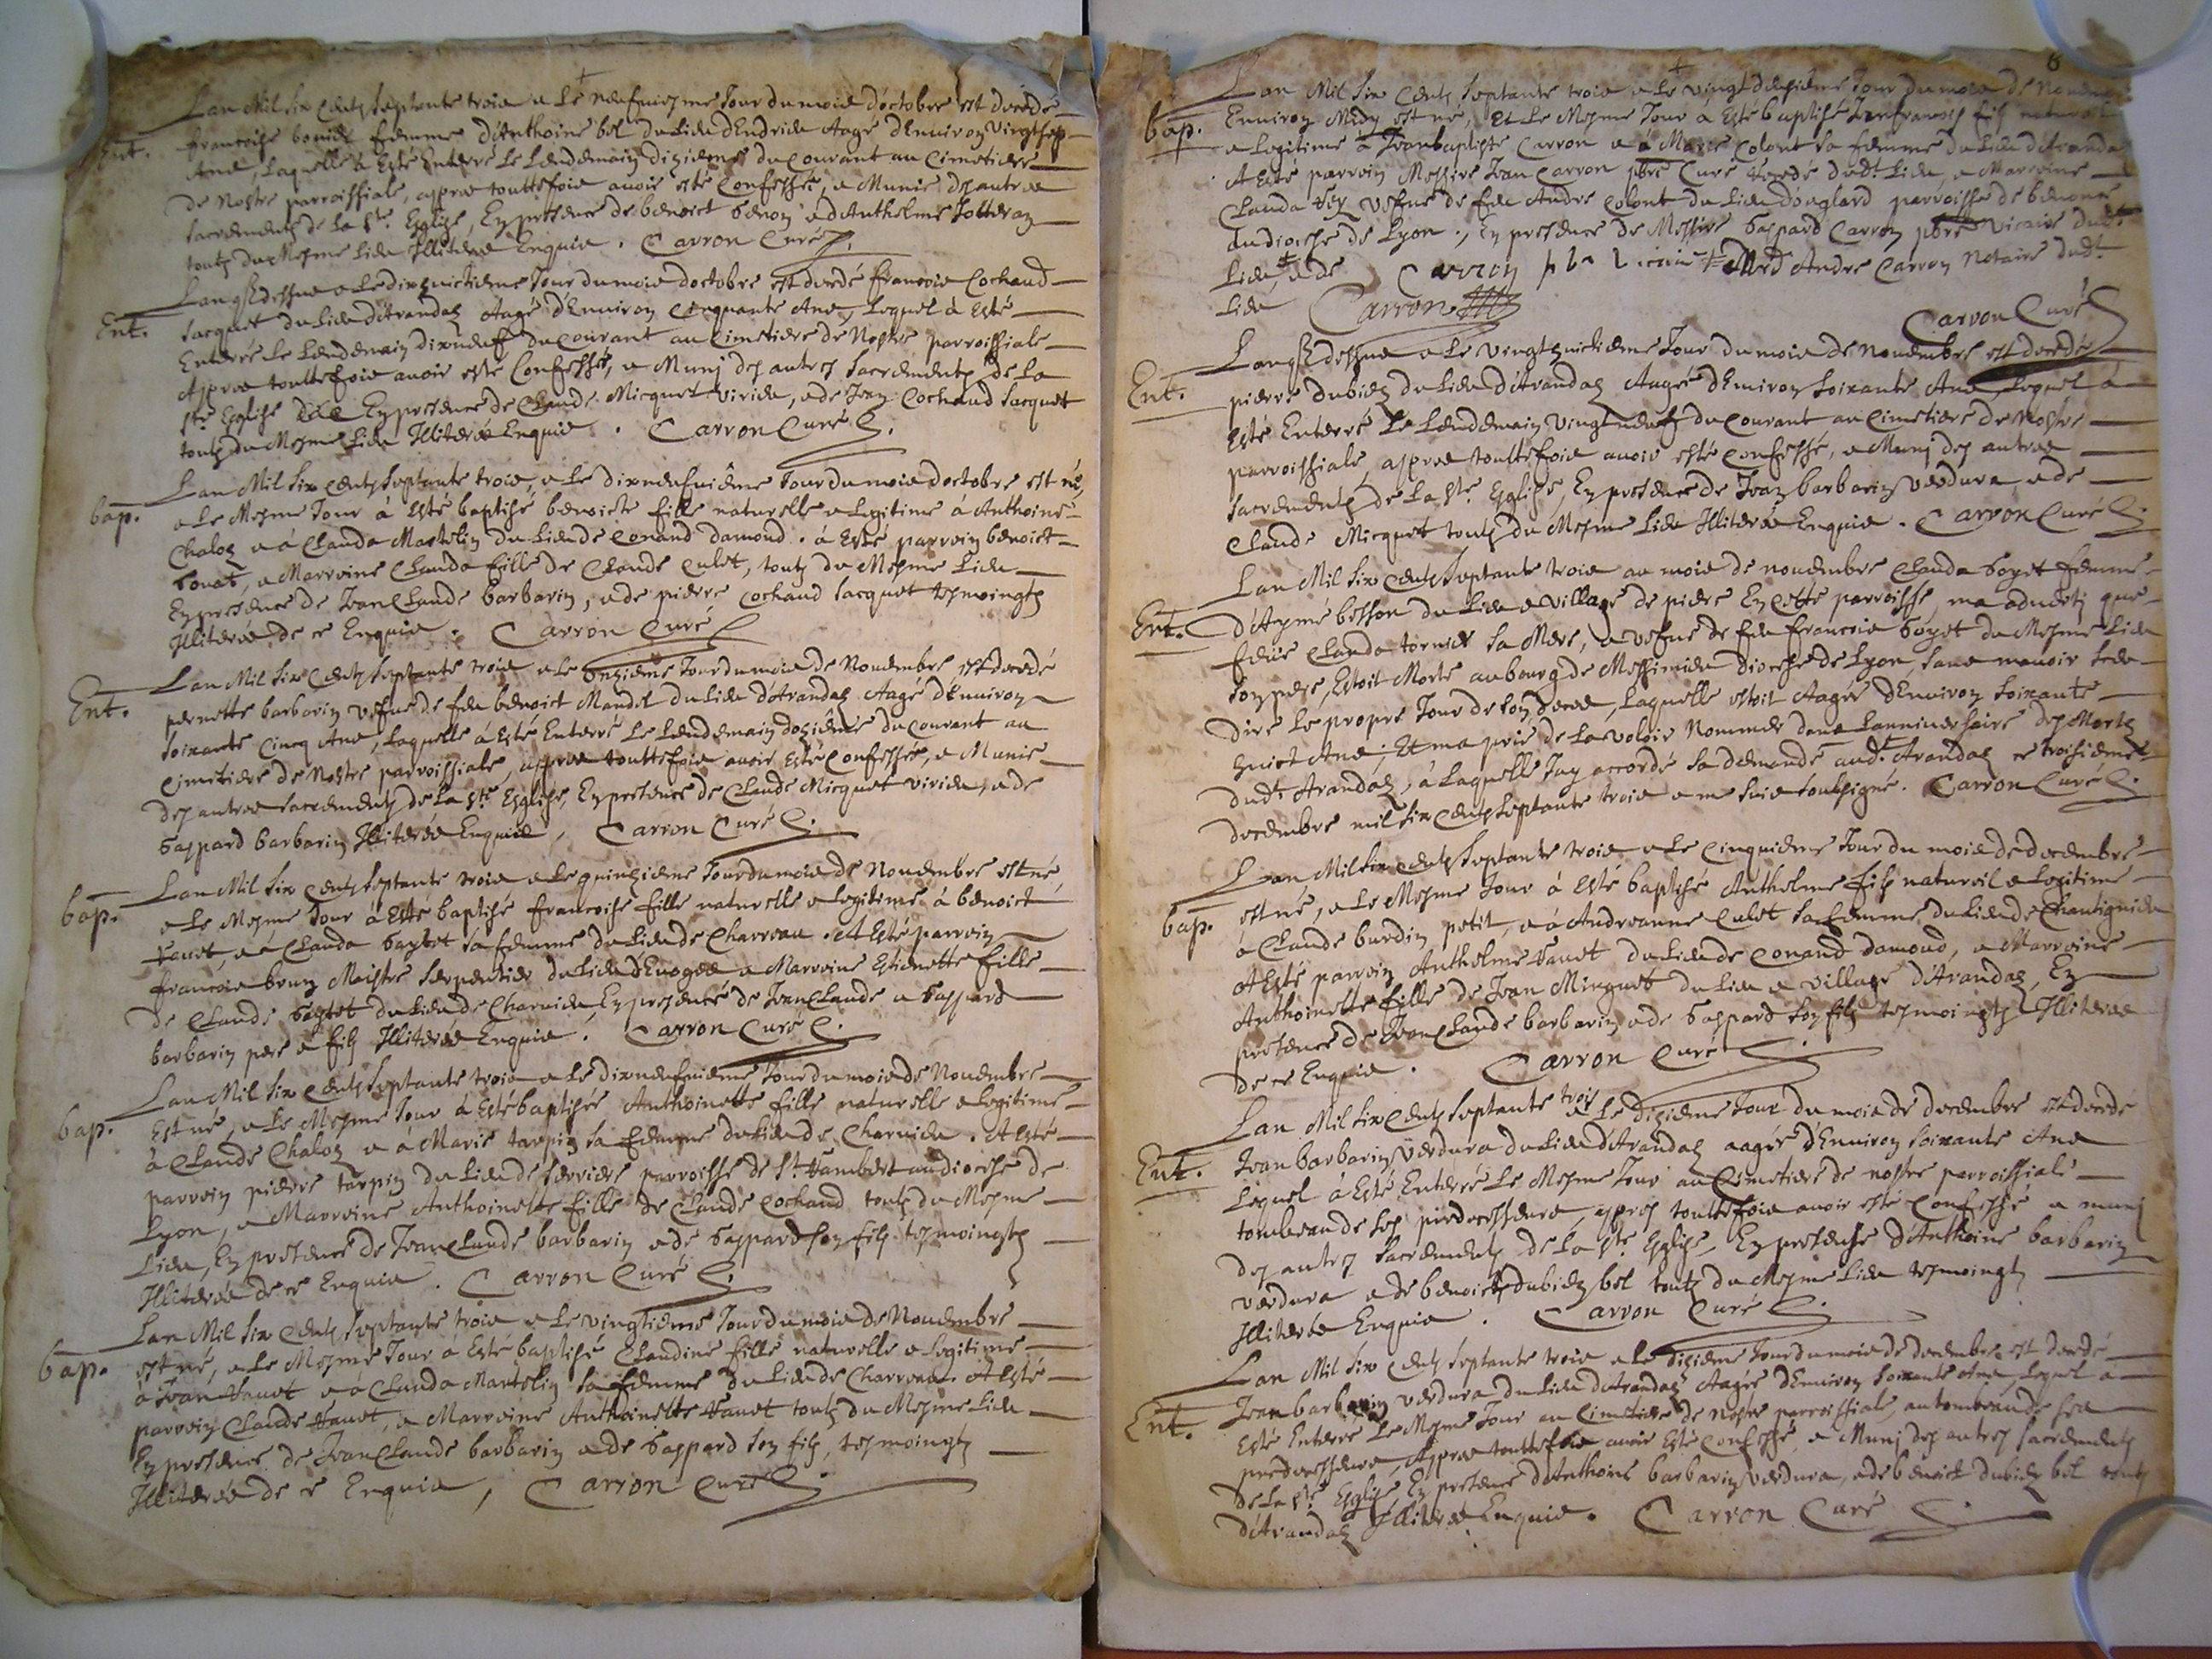 Lan Mil six centz septante trois e le neufuiesme Jour du mois d'octobre est decedé
Ent. francoise femme d'Anthoine bel du Lieu d'Endrieu Aagé d'Enuiron vingt sep
Ans, Laquelle à Esté Enterré Le Lendemain dixiesme du Courant au Cimetiere
de Nostre parroissiale, appres touttefois auoir esté Confessée, e Munie des autres
sacrements de La Ste. Esglise, En presence de benoict benon e d'Anthelme Jolteran
toutz du Mesme Lieu Illiterés Enquis. Carron Curé
Lan q dessus e Le dixhuictieme Jour du mois doctobre est decedé francois Cochaud
Ent. Jacquet du Lieu d'Arandaz Aagé d'Enuiron Cinquante Ans, Lequel à Esté
Enterré Le Lendemain dixneuf du Courant au Cimetiere de Nostre parroissiale
Appres touttefois auoir esté Confessé, e Munj des autres sacrementz de La
Ste Esglise En presence de Claude Micquet virieu, e de Jean Cochaud Jacquet
toutz du Mesme Lieu Illiterés Enquis. Carron Curé
Lan Mil six centz septante trois, e Le dixneufuième Jour du mois doctobre est né,
bap. e Le Mesme Jour à Esté baptisé benoiste fille naturelle e Legitime à Anthoine
Chaloz e à Clauda Martelin du Lieu de Conand damond. à Esté parrein benoict
bouat, e Marreine Clauda fille de Claude Culet, toutz du Mesme Lieu
En presence de Jean Claude barbarin, e de pierre Cochaud Jacquet tesmoingtz
Illiterés de ce Enquis. Carron Curé
Lan Mil six centz septante trois e Le Onzieme Jour du mois de Nouembre, est decedé
Ent. pernette barbarin vefue de feu benoict Mandel du Lieu d'Arandaz Aagé d'Enuiron
soixante Cincq Ans, Laquelle à Esté Enterré Le Lendemain dozième du courant au
Cimetiere de Nostre parroissiale, appres touttefois auoir Esté Confessée, e Munie
des autres sacrementz de La Ste Esglise, En presence de Claude Micquet virieu, e de
Gaspard barbarin Illiterés Enquis, Carron Curé
Lan Mil six centz septante trois e Le quinzieme Jour du mois de Nouembre est né,
bap. e Le Mesme Jour à Esté baptisé francoise fille naturelle e Legitime à benoict
Vauet, e à Clauda Gaytet sa femme du Lieu de Charueau. A Esté parrein
francois brun Maistre serpentier du Lieu d'Euoges e Marreine Estienette fille
de Claude Gaytet du Lieu de Charuieu, En presence de Jean Claude e Gaspard
barbarin pere e filz Illiterés Enquis. Carron Curé
Lan Mil six centz septante trois e Le dixneufuieme Jour du mois de Nouembre
bap. Est né, e Le Mesme Jour à Esté baptisée Anthoinette fille naturelle e Legitime
à Claude Chaloz e à Marie tarpin sa femme du Lieu de Charuieu. A Esté
parrein pierre tarpin du Lieu de serriere parroisse de St Rambert au diocese de
Lyon, e Marreine Anthoinette fille de Claude Cochaud toutz du Mesme
Lieu, En presence de Jean Claude barbarin e de Gaspard son filz tesmoingtz
Illiterés de ce Enquis. Carron Curé
Lan Mil six centz septante trois e Le vingtieme Jour du mois de Nouembre
bap. est né, e Le Mesme Jour à Esté baptisé Claudine fille naturelle e Legitime
à Jean Vauet e à Clauda Martelin sa femme du Lieu de Charueau. A Esté
parrein Claude Vauet, e Marreine Anthoinette Vauet toutz du Mesme Lieu
En presence de Jean Claude barbarin e de Gaspard son filz, tesmoingtz
Illiterés de ce Enquis, Carron Curé
8
Lan Mil six centz septante trois e Le vingt deuxième Jour du mois de Nouem
bap. Enuiron Midy est né, Et Le Mesme Jour à Esté baptisé Jean francois filz naturel
e Legitime à Jean baptiste Carron e à Marie Colont sa femme du Lieu d'Arandas
A Esté parrein Messire Jean Carron pbre Curé dudt. Lieu, e Marreine
Clauda vefue de feu Andre Colont du Lieu douglard parroisse de benonce
au diocese de Lyon., En presence de Messire Gaspard Carron pbre vicaire dudt
Lieu, e de Carron pbr vicaire Me Andre Carron Notaire dudt
Lieu Carron Carron Curé
Lan q dessus e Le vingt huictieme Jour du mois de Nouembre est decedé
Ent. pierre dubiez du Lieu d'Arandaz Aagé d'Enuiron soixante Ans, Lequel à
Esté Enterré Le Lendemain vingt neuf du courant au Cimetiere de Nostre
parroissiale, appres touttefois auoir esté confessé, e Munj des autres
sacrementz de La Ste. Esglise, En presence de Jean barbarin verdura, e de
Claude Micquet toutz du Mesme Lieu Illiterés Enquis. Carron Curé
Lan Mil six centz septante trois au mois de nouembre Clauda Goyet femme
Ent. d'Aymé besson du Lieu e village de piere En cette parroisse, ma aduerty que
feüe Clauda tornier sa Mere, e vefue de feu francois Goyet du Mesme Lieu
son pere, Estoit Morte au bourg de Messimieu diocese de Lyon, sans mauoir sceu
dire Le propre Jour de son deces, Laquelle estoit Aagée d'Enuiron soixante
huict Ans; Et ma prié de La voloir Nommer dans Lanniuersaire des Mortz
dudt. Arandaz, à Laquelle Jay accordé sa demande audt. Arandaz ce troisieme
decembre mil six centz septante trois e me suis soubsigné. Carron Curé
Lan Mil six centz septante trois e Le Cinquieme Jour du mois de decembre
bap. est né, e Le Mesme Jour à Esté baptisé Anthelme filz naturel e Legitime
à Claude burdin petit, e à Andreanne Culet sa femme du Lieu de Chantignieu
A Esté parrein Anthelme Vauet du Lieu de Conand damond, e Marreine
Anthoinette fille de Jean Minguet du Lieu e village d'Arandaz, En
presence de Jean Claude barbarin e de Gaspard son filz tesmoingtz Illiterés
de ce Enquis. Carron Curé
Lan Mil six centz septante trois e Le dixieme Jour du mois de decembre est decedé
Ent. Jean barbarin verdura du Lieu d'Arandaz aagée d'Enuiron soixante Ans
Lequel à Esté Enterré Le Mesme Jour au Cimetiere de nostre parroissiale
tombeau de ses predecesseurs, appres touttefois auoir esté Confessé e munj
des autres sacrementz de La Ste. Esglise, En presence d'Anthoine barbarin
verdura e de benoict dubiez bel toutz du Mesme Lieu tesmoingtz
Illiterés Enquis. Carron Curé
Lan Mil six centz septante trois e Le dixieme Jour du mois de decembre est decedé
Ent. Jean barbarin verdura du Lieu d'Arandaz Aagée d'Enuiron soixante Ans, Lequel a
Esté Enterré Le Mesme Jour au Cimetiere de Nostre parroissiale, au tombeau de ses
predecesseurs, Appres touttefois auoir Esté Confessé, e Munj des autres sacrementz
de La Ste Esglise En presence d'Anthoine barbarin verdura, e de benoict dubiez bel toutz
d'Arandaz Illiterés Enquis. Carron Curé